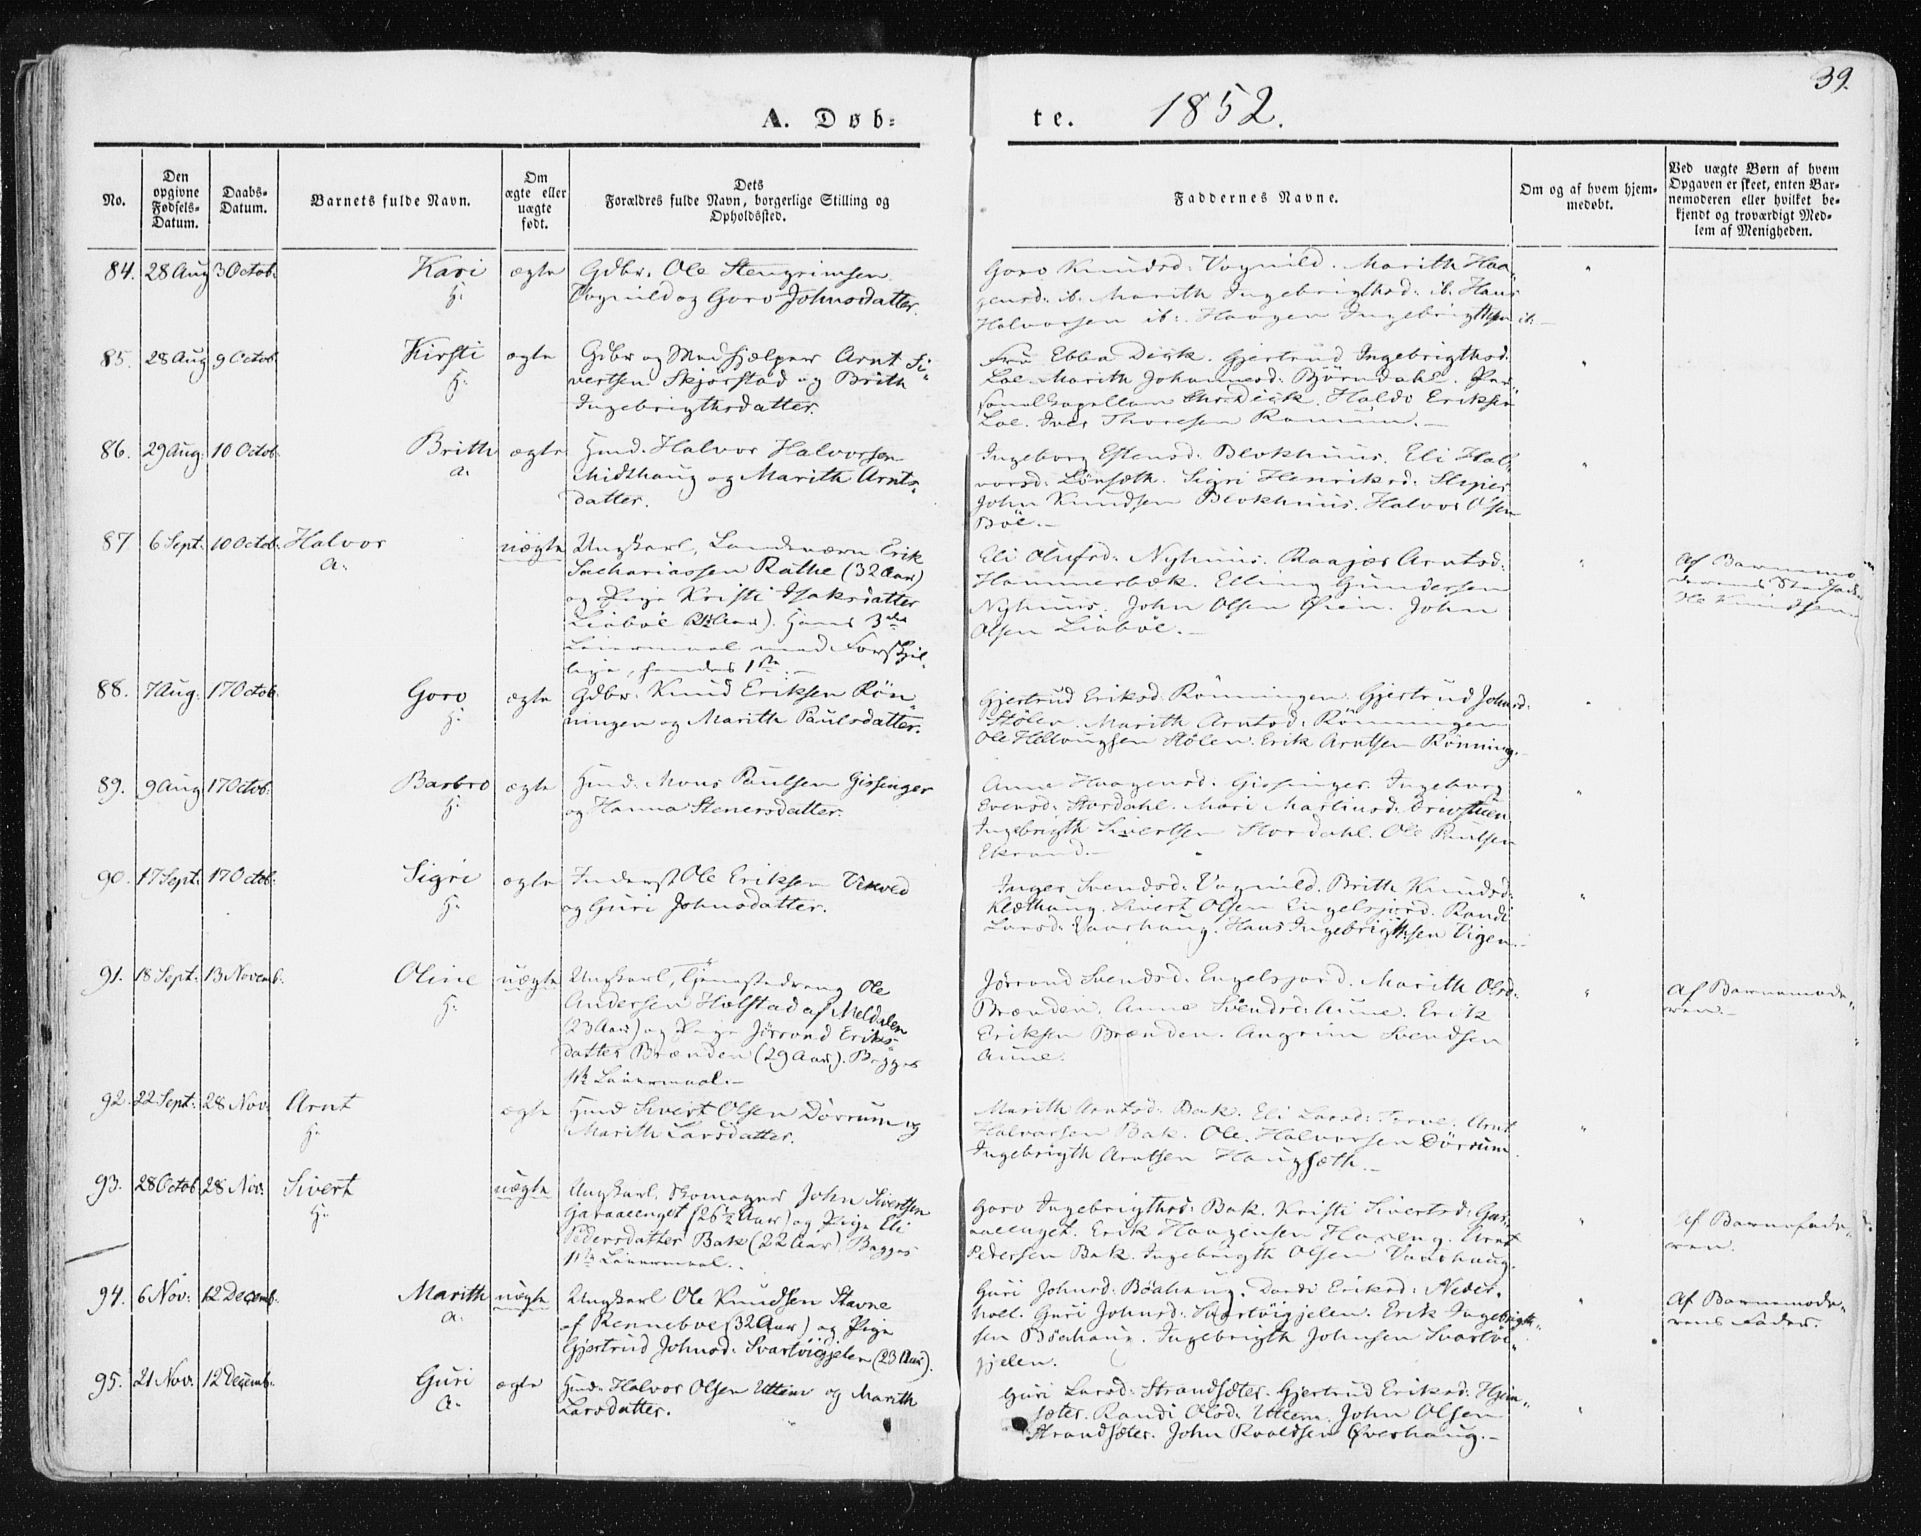 39.
A. Døb-
te. 1852.
No.
Den opgivne Fødsels-Datum.
Daabs-Datum.
Barnets fulde Navn.
Om ægte eller uægte født.
Dets Forældres fulde Navn, borgerlige Stilling og Opholdssted.
Faddernes Navne.
Om og af hvem hjem-medøbt.
Ved uægte Børn af hvem Opgaven er skeet, enten Bar-nemoderen eller hvilket be-kjendt og troværdigt Med-lem af Menigheden.
84. 28 Aug 3 Octob: Kari ægte Gdbr. Ole Stengrimsen
H.
Vognild og Goro Johnsdatter.
Goro Knudsd: Vognild. Marith Haa-
gensd: ib. Marith Ingebrigthsd: ib. Hans
Halvorsen ib: Haagen Ingebrigthsen ib.
85. 28 Aug 9 Octob Kirsti ægte Gdbr og Medhjælper Arnt Si-
H.
vertsen Skjørstad og Brith
Ingebrigthsdatter.
Fru Ebba Dick. Gjertrud Ingebrigthsd:
Loe. Marith Johannesd: Björndahl. Per-
sonelkapellan Dick. Haldo Eriksen
Loe. Iver Thoresen
86. 29 Aug. 10 Octob. Brith ægte Huusm. Halvor Halvorsen
a.
Midthaug og Marith Arnts-
datter.
Ingeborg Estensd: Blokhuus. Eli Hal-
vorsd: Lönsæth. Sigri Henriksd: Slipir
John Knudsen Blokhuus. Halvor Olsen
Böe.
87 6 Sept: 10 Octob. Halvor uægte Ungkarl, Landeværn Erik
a.
Sachariassen Rathe (32 Aar)
og Pige Kristi Isaksdatter
Liaböe Hans 3die
Leiermaal med Forskjel-
lige, hendes 1ste.
Eli Olufsd: Nyhuus. Arntsd:
Hammerbæk. Elling Gundersen
Nyhuus. John Olsen Øien. John
Olsen Liaböe.
Af Barnemo-
derens Stedfader
Ole Knudsen
88. 7 Aug. 17 Octob. Goro ægte Gdbr. Knud Eriksen Rön-
H.
ningen og Marith Paulsdatter.
Gjertrud Eriksd. Rönningen. Gjertrud Johnsd:
Stölen. Marith Arntsd: Rönningen
Ole Stölen. Erik Arntsen Rönning.
89. 9 Aug 17 Octob: Barbro ægte Huusm. Mons Paulsen Gissinger
H.
og Hanna Stenersdatter.
Anne Haagensd: Gissinger. Ingeborg
Evensd: Stordahl. Mari Martinsd: Drivstuen
Ingebrigth Sivertsen Stordahl. Ole Paulsen
Ekrand.
90. 17 Sept: 17 Octob: Sigri ægte Inderst Ole Eriksen
H.
og Guri Johnsdatter.
Inger Svendsd: Vognild. Brith Knudsd:
Klæthaug. Sivert Olsen Engelsjord. Randi
Larsd: Vaarhaug. Hans Ingebrigthsen Vigen.
91. 18 Sept: 13 Novemb. Oline uægte Ungkarl, Tjenestedreng Ole
H.
Andersen Holstad af Meldalen
(23 Aar) og Pige Jörrond Eriks-
datter Brænden (29 Aar). Begges
1ste Leiermaal.
Jörrond Svendsd: Engelsjord. Marith Olsd:
Brænden. Anne Svendsd: Aune. Erik
Eriksen Brænden. Angrim Svendsen
Aune.
Af Barnemode-
ren.
92. 22 Sept. 28 Nov. Arnt ægte Huusm Sivert Olsen Dörrum og
H.
Marith Larsdatter.
Marith Arntsd: Bak. Eli Larsd: Arnt
Halvorsen Bak. Ole Halvorsen Dörrum.
Ingebrigth Arntsen Haugsæth.
93. 28 Octob. 28 Nov. Sivert uægte Ungkarl, Skomager John Sivertsen
H.
Garaaenget (26½ Aar) og Pige Eli
Pedersdatter Bak (22 Aar). Begges
1ste Leiermaal.
Goro Ingebrigthsd: Bak. Kristi Sivertsd: Gar-
aaenget. Erik Haagensen Haveng. Arnt
Pedersen Bak. Ingebrigth Olsen Vaarhaug.
Af Barnefade-
ren.
94. 6 Nov. 12 Decemb. Marith uægte Ungkarl Ole Knudsen Stavne
a.
af Renneboe (32 Aar) og Pige
Gjertrud Johnsd: Svartöiggjelen (23 Aar).
Guri Johnsd: Böahaug. Dordi Eriksd: Neder-
hoel. Guri Johnsd: Svartöigjelen. Erik Ingebrigth-
sen Böahaug. Ingebrigth Johnsen Svartöi-
gjelen.
Af Barnemode-
rens Fader.
95. 21 Nov. 12 Decemb. Guri ægte Huusm. Halvor Olsen Uttem og Marith
a.
Larsdatter.
Guri Larsd: Strandsæter. Gjertrud Eriksd: Hjem-
sæter. Randi Olsd: Uttem. John Olsen
Strandsæter. John Roaldsen Överhaug.